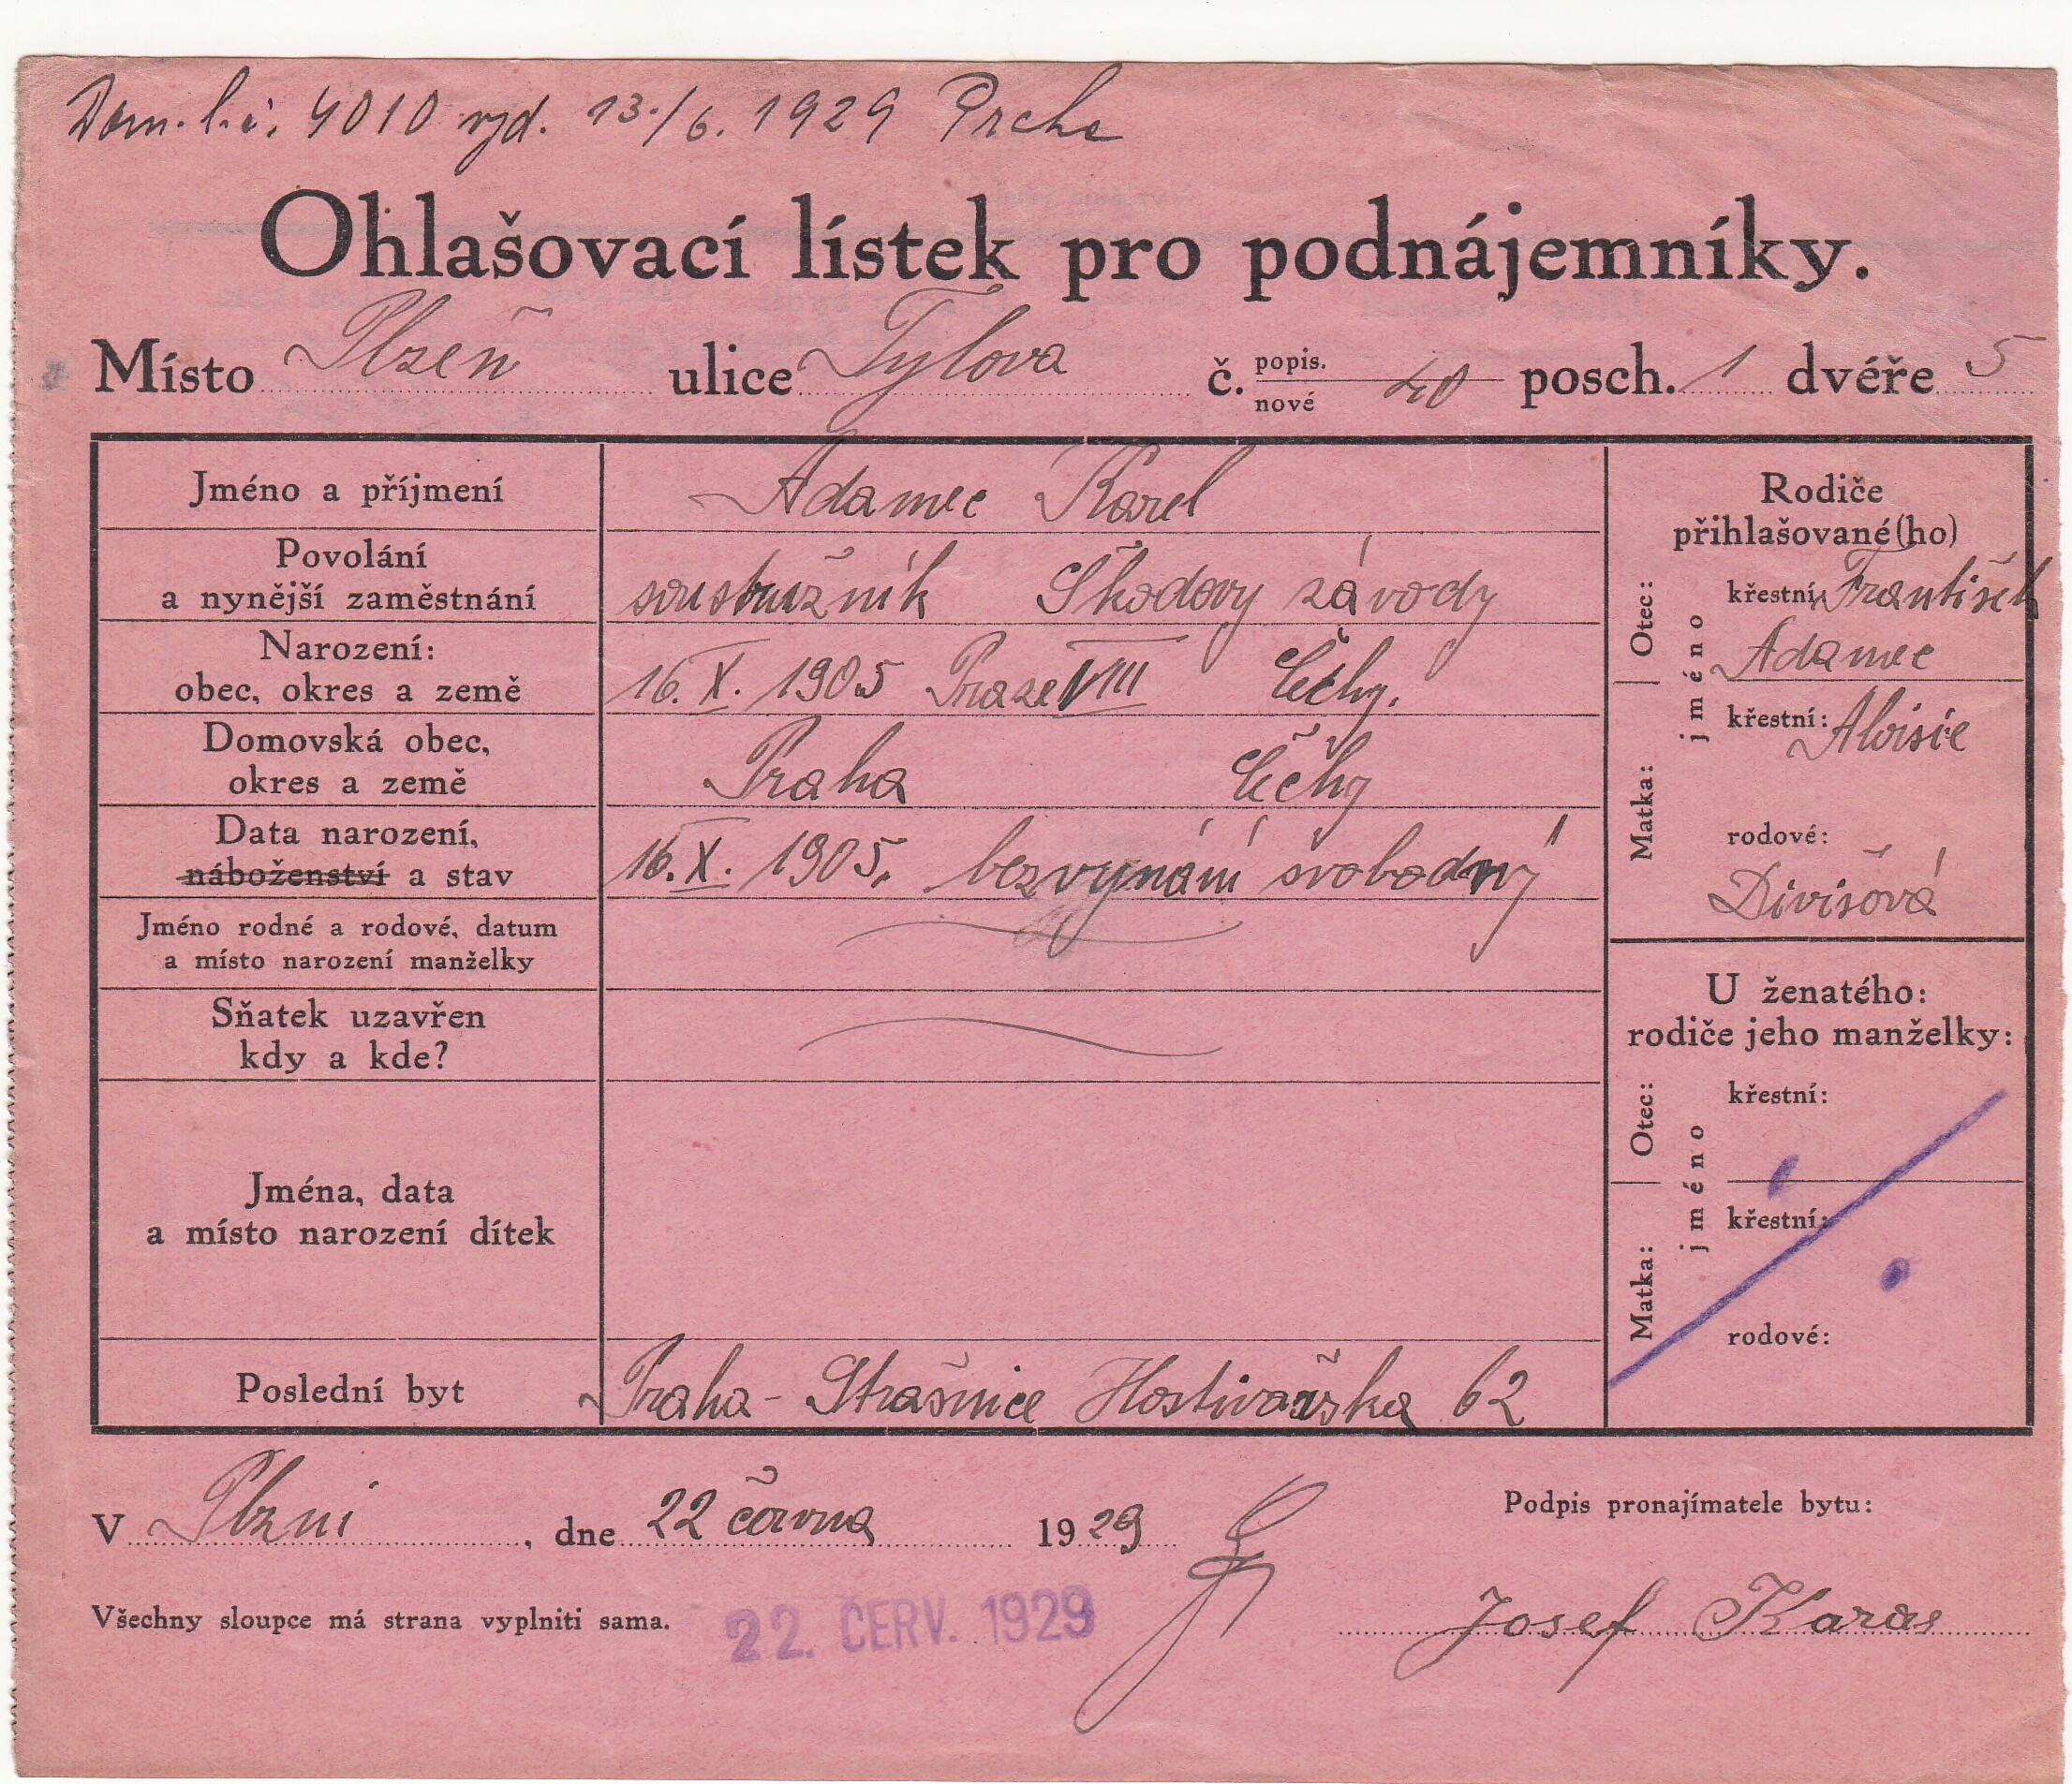 Dom. l. č. 4010 vyd. 13./6. 1929 Praha
Ohlašovací lístek pro podnájemníky.
Místo Plzeň ulice Tylova č. popis. nové 40 posch. 1 dvéře 5
Jméno a příjmení
Adamec Karel
Povolání
a nynější zaměstnání
soustružník Škodovy závody
Narození:
obec, okres a země
16. X. 1905 Praze VIII Čechy.
Domovská obec,
okres a země
Praha Čechy
Data narození,
náboženství a stav
16. X. 1905. bez vyznání svobodný
Jméno rodné a rodové, datum
a místo narození manželky
Sňatek uzavřen
kdy a kde?
Jména, data
a místo narození dítek
Poslední byt
Praha - Strašnice Hostivařska 62
Rodiče
přihlašované(ho)
Otec:
jméno
křestní: František
Adamec
Matka:
křestní: Aloisie
rodové:
Divišová
U ženatého:
rodiče jeho manželky:
Otec:
jméno
křestní:
Matka:
křestní:
rodové:
V Plzni, dne 22 června 1929
Podpis pronajímatele bytu:
Všechny sloupce má strana vyplniti sama.
22. ČERV. 1929
Josef Karas